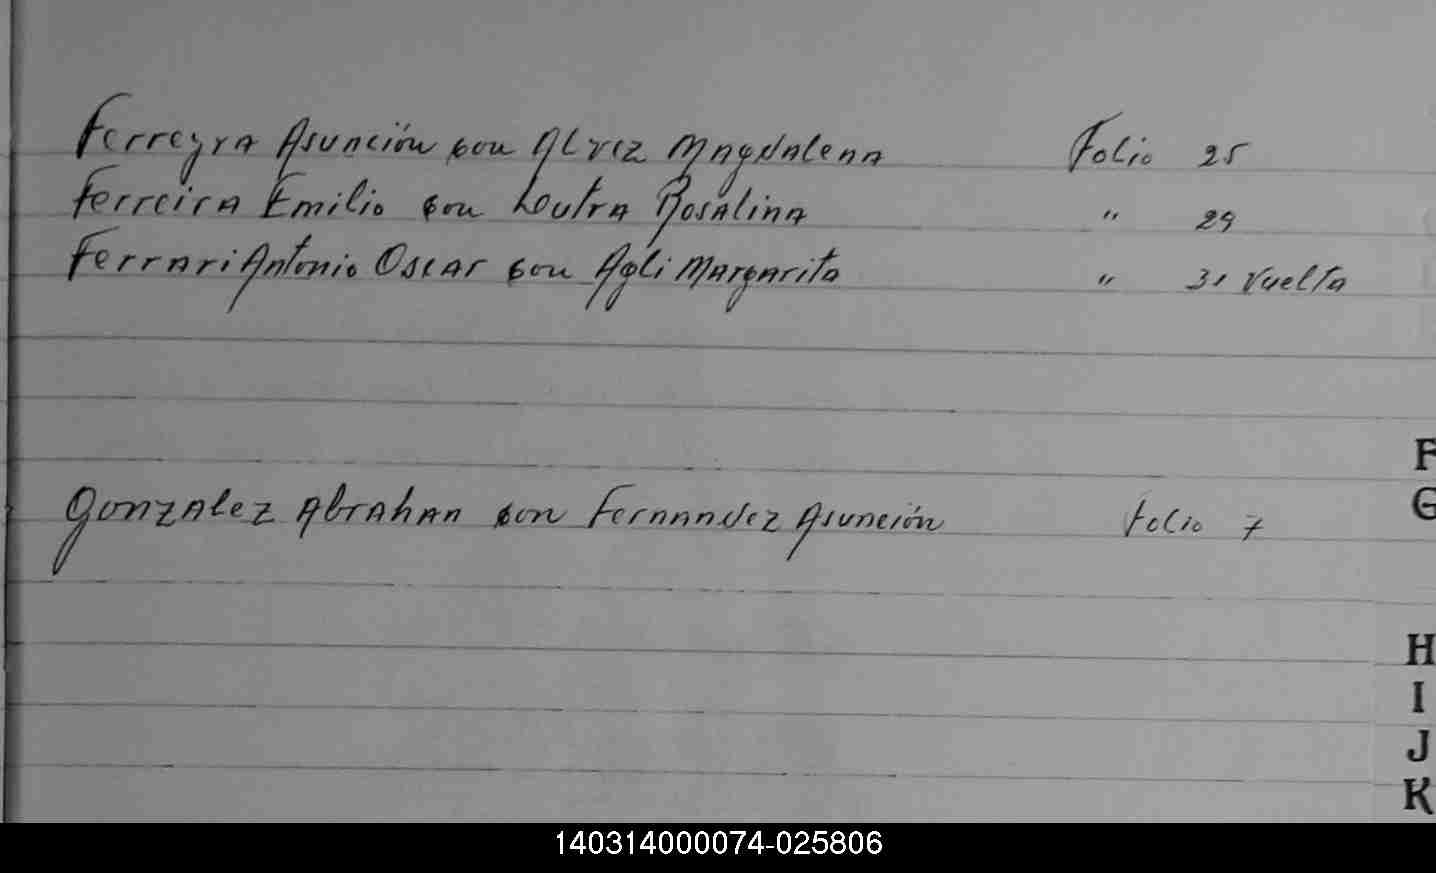 Ferreyra Asunción con Alvez Magdalena Folio 25
Ferreira Emilio con Loutra Rosalina " 29
Ferrari Antonio Oscar con Agli Margarita " 31 Vuelta
F
Gonzalez Abrahan con Fernandez Asunción Folio 7
G
H
I
J
K
140314000074-025806